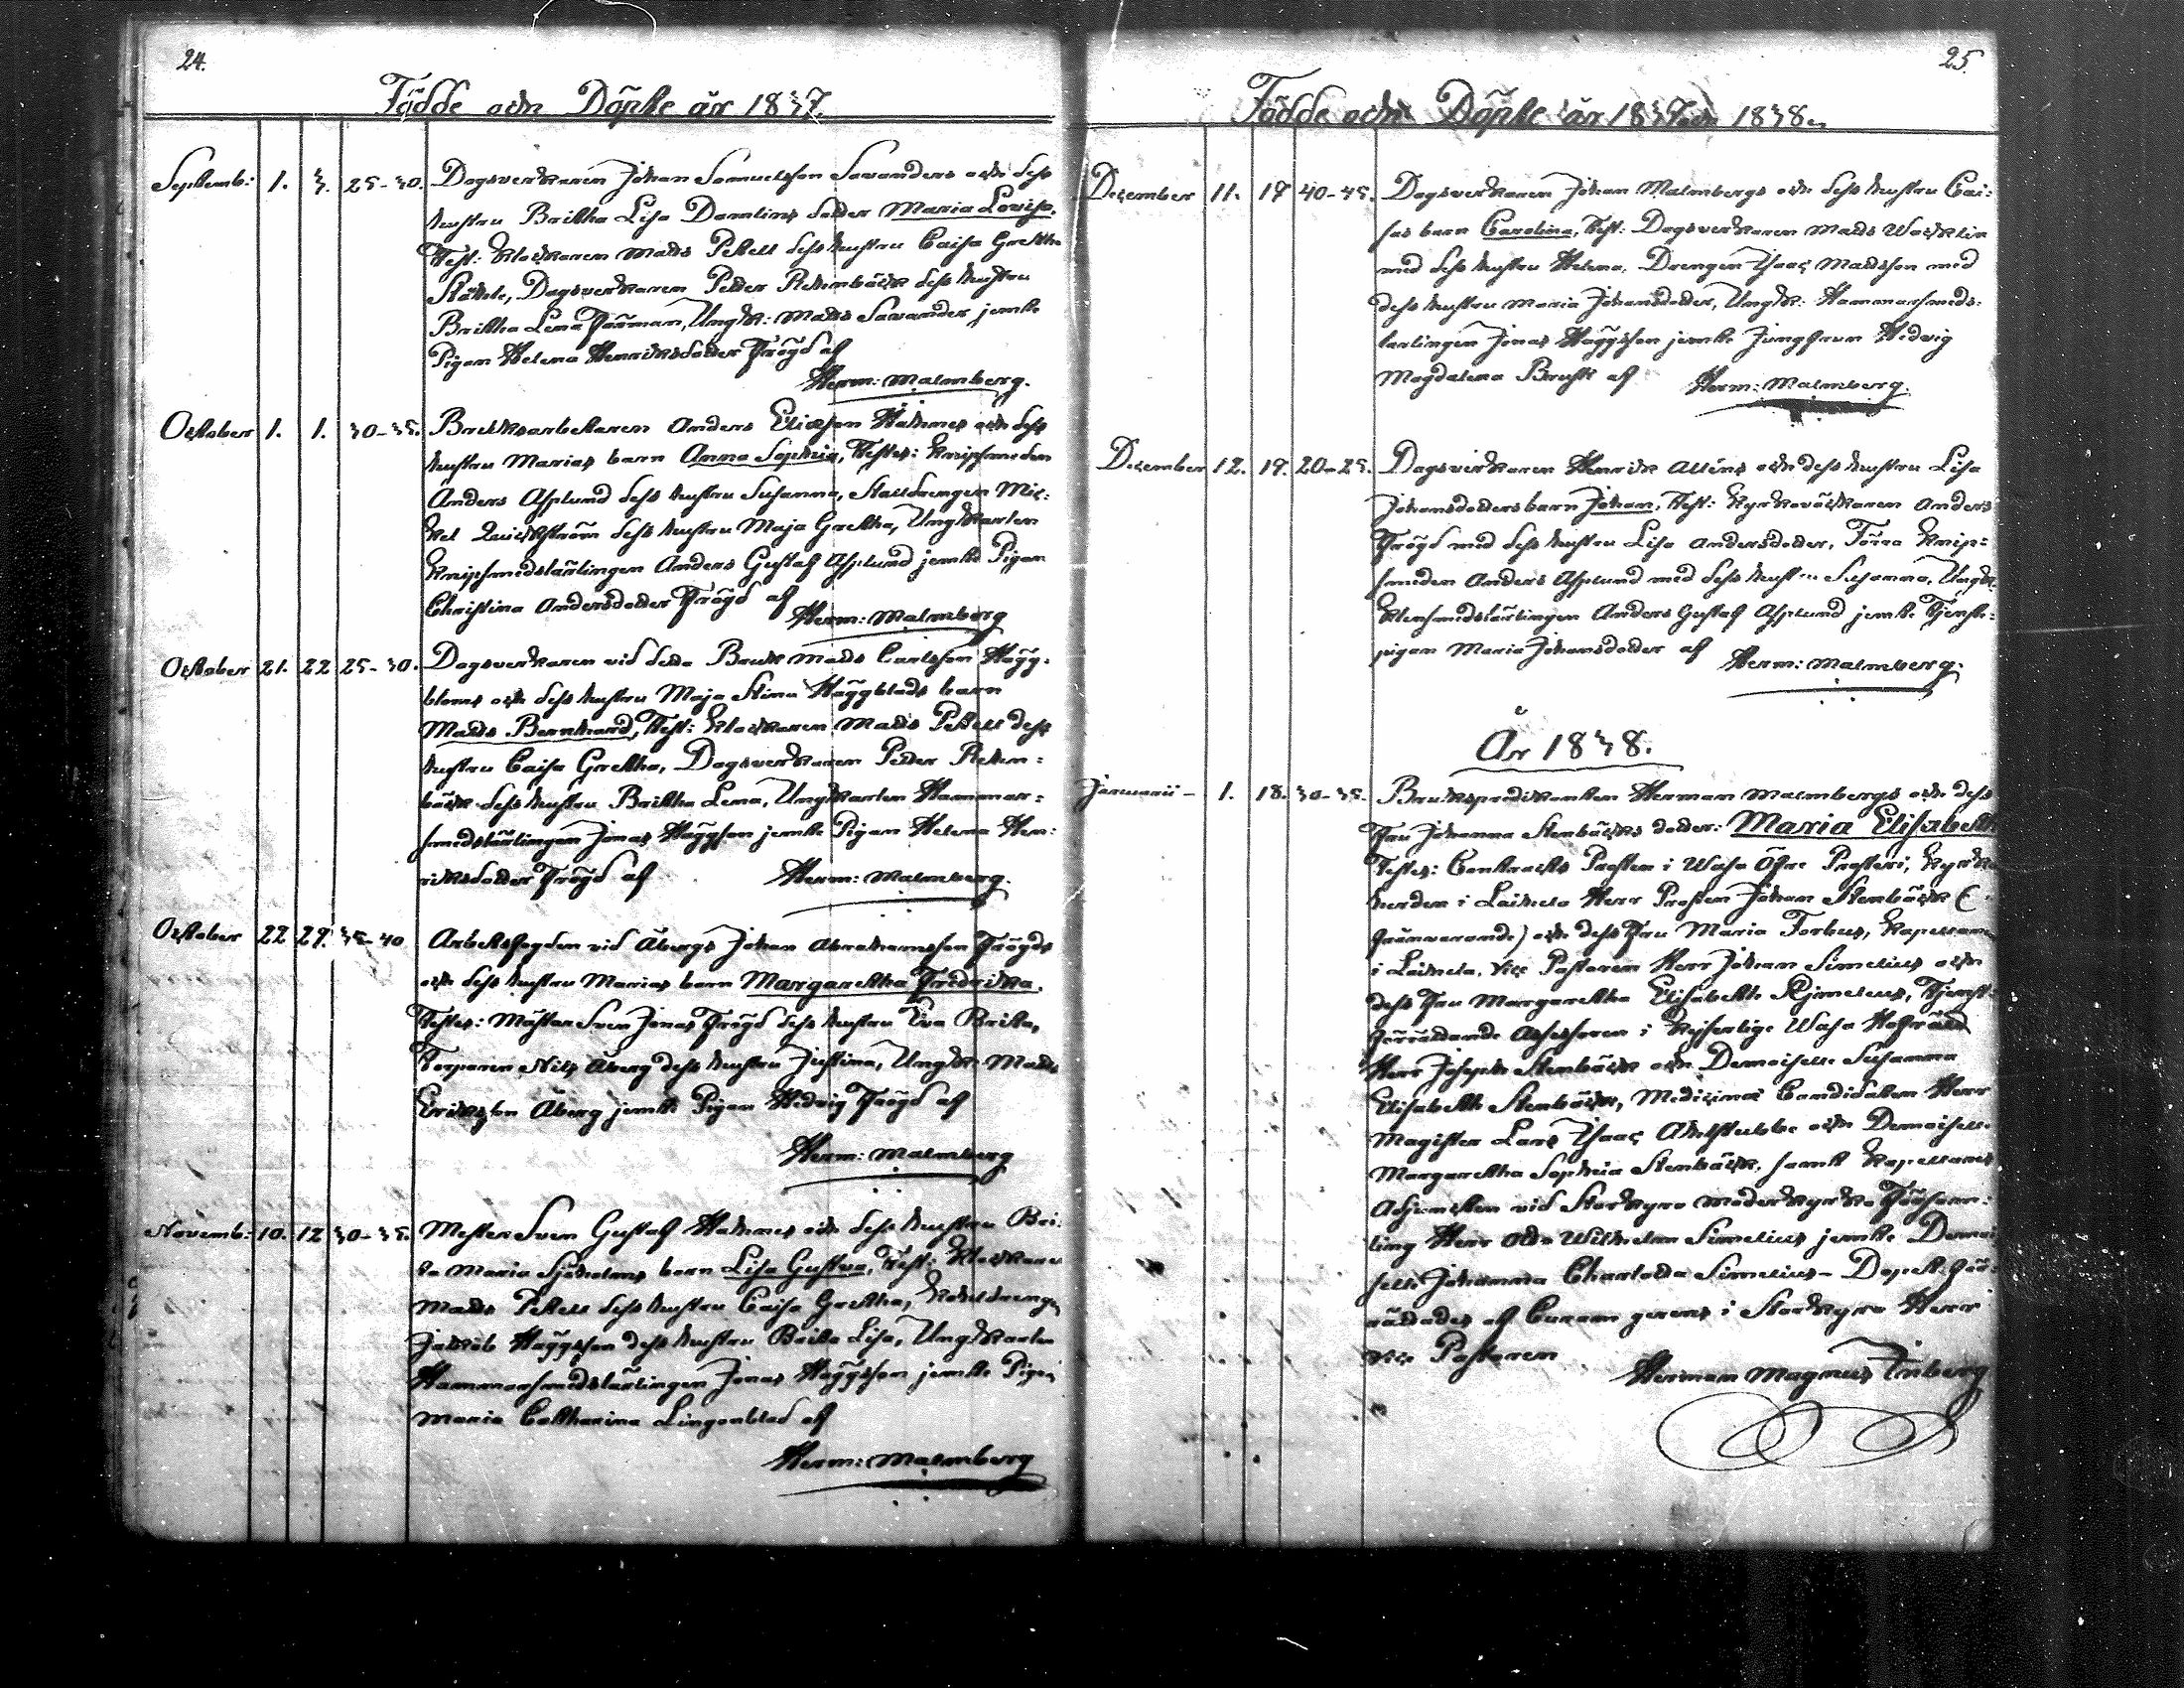 24.
Födde och Döpte år 1837.
Septemb: 1. 3. 25-30. Dagsverkaren Johan Samuelsson Savanders och dess
hustru Britha Lisa Damlins dotter Maria Lovisa.
Test: Klockaren Matts Pettell dess hustru Caisa Gretha
Ståhle, Dagsverkaren Petter Rehnbäck dess hustru
Britha Lena Färman, Ungk: Matts Savander jemte
Pigan Helena Henriksdotter Fröjd af
Herm: Malmberg.
October 1. 1. 30-35. Bruksarbetaren Anders Ericsson Hahnes och dess
hustru Marias barn Anna Sophia, Testes: Knipsmeden
Anders Asplund dess hustru Susanna, Stalldrengen Mic:
kel Quickström dess hustru Maja Gretha, Ungkarlen
Knipsmedslärlingen Anders Gustaf Asplund jemte Pigan
Christina Andersdotter Fröjd af
Herm: Malmberg
October 21. 22 25-30. Dagsverkaren vid detta Bruk Matts Carlsson Hägg:
bloms och dess hustru Maja Stina Häggblads barn
Matts Bernhard, Test: Klockaren Matts Pettell dess
hustru Caisa Gretha, Dagsverkaren Petter Rehn:
bäck dess hustru Britha Lena, Ungkarlen Hammar:
smedslärlingen Jonas Häggson jemte Pigan Helena Hen:
riksdotter Fröjd af
Herm: Malmberg.
October 22 29. 35-40 Arbetsfogden vid Åbergs Johan Abrahamsson Fröjds
och dess hustru Marias barn Margaretha Fredrika.
Testes: Mäster Sven Jonas Fröjd dess hustru Eva Brita,
Torparen Nils Åberg dess hustru Justina, Ungk: Matts
Ericsson Åberg jemte Pigan Hedvig Fröjd af
Herm: Malmberg
Novemb: 10. 12 30-35. Mester Sven Gustaf Hahnes och dess hustru Bri:
ta Maria Sjöholms barn Lisa Gustava, Test: Klockaren
Matts Pettell dess hustru Caisa Gretha, Kohldrengen
Jakob Häggsson dess hustru Brita Lisa, Ungkarlen
Hammarsmedslärlingen Jonas Häggsson jemte Pigan
Maria Catharina Lingonblad af
Herm: Malmberg
25.
Födde och Döpte år 1837 och 1838.
December 11. 17 40-45. Dagsverkaren Johan Malmbergs och dess hustru Cai:
sas barn Carolina, Test: Dagsverkaren Matts Wacklin
med dess hustru Helena, Drengen Isaac Mattsson med
dess hustru Maria Johansdotter, Ungk: Hammarsmeds:
lerlingen Jonas Häggsson jemte Jungfrun Hedvig
Magdalena Bruhn af
Herm: Malmberg.
December 12. 19. 20-25. Dagsverkaren Henrik Alléns och dess hustru Lisa
Johansdotters barn Johan, Test: Kyrkoväcktaren Anders
Fröjd med dess hustru Lisa Andersdotter, Förra Knip:
smeden Anders Asplund med dess hustru Susanna, Ungk:
Klensmedslärlingen Anders Gustaf Asplund jemte Tjenste:
pigan Maria Johansdotter af
Herm: Malmberg.
År 1838.
Januarii - 1. 18. 30-35. Brukspredikanten Herman Malmbergs och dess
Fru Johanna Stenbäcks dotter: Maria Elisabeth
Testes: Contracts Prosten i Wasa Öfre Prosteri, Kyrko
herden i Laihela Herr Prosten Johan Stenbäck (
frånvarande) och dess Fru Maria Forbus, Kapellanen
i Laihela, Vice Pastoren Herr Johan Simelius och
dess Fru Margaretha Elisabeth Simelius, Tjenst:
förrättande Assessoren i Kejserlige Wasa Hofrätt
Herr Joseph Stenbäck och Demoiselle Susanna
Elisabeth Stenbäck, Medicinæ Candidaten Herr
Magister Lars Isaac Ahlstubbe och Demoiselle
Margaretha Sophia Stenbäck, samt Kapellans
Adjuncten vid Storkyro Moderkyrka
ling Herr Otto Wilhelm Simelius jemte Demoi
selle Johanna Charlotta Simelius - Dopet för:
rättades af Curam gerens i Storkyro Herr
Vice Pastoren
Herman Magnus Enberg